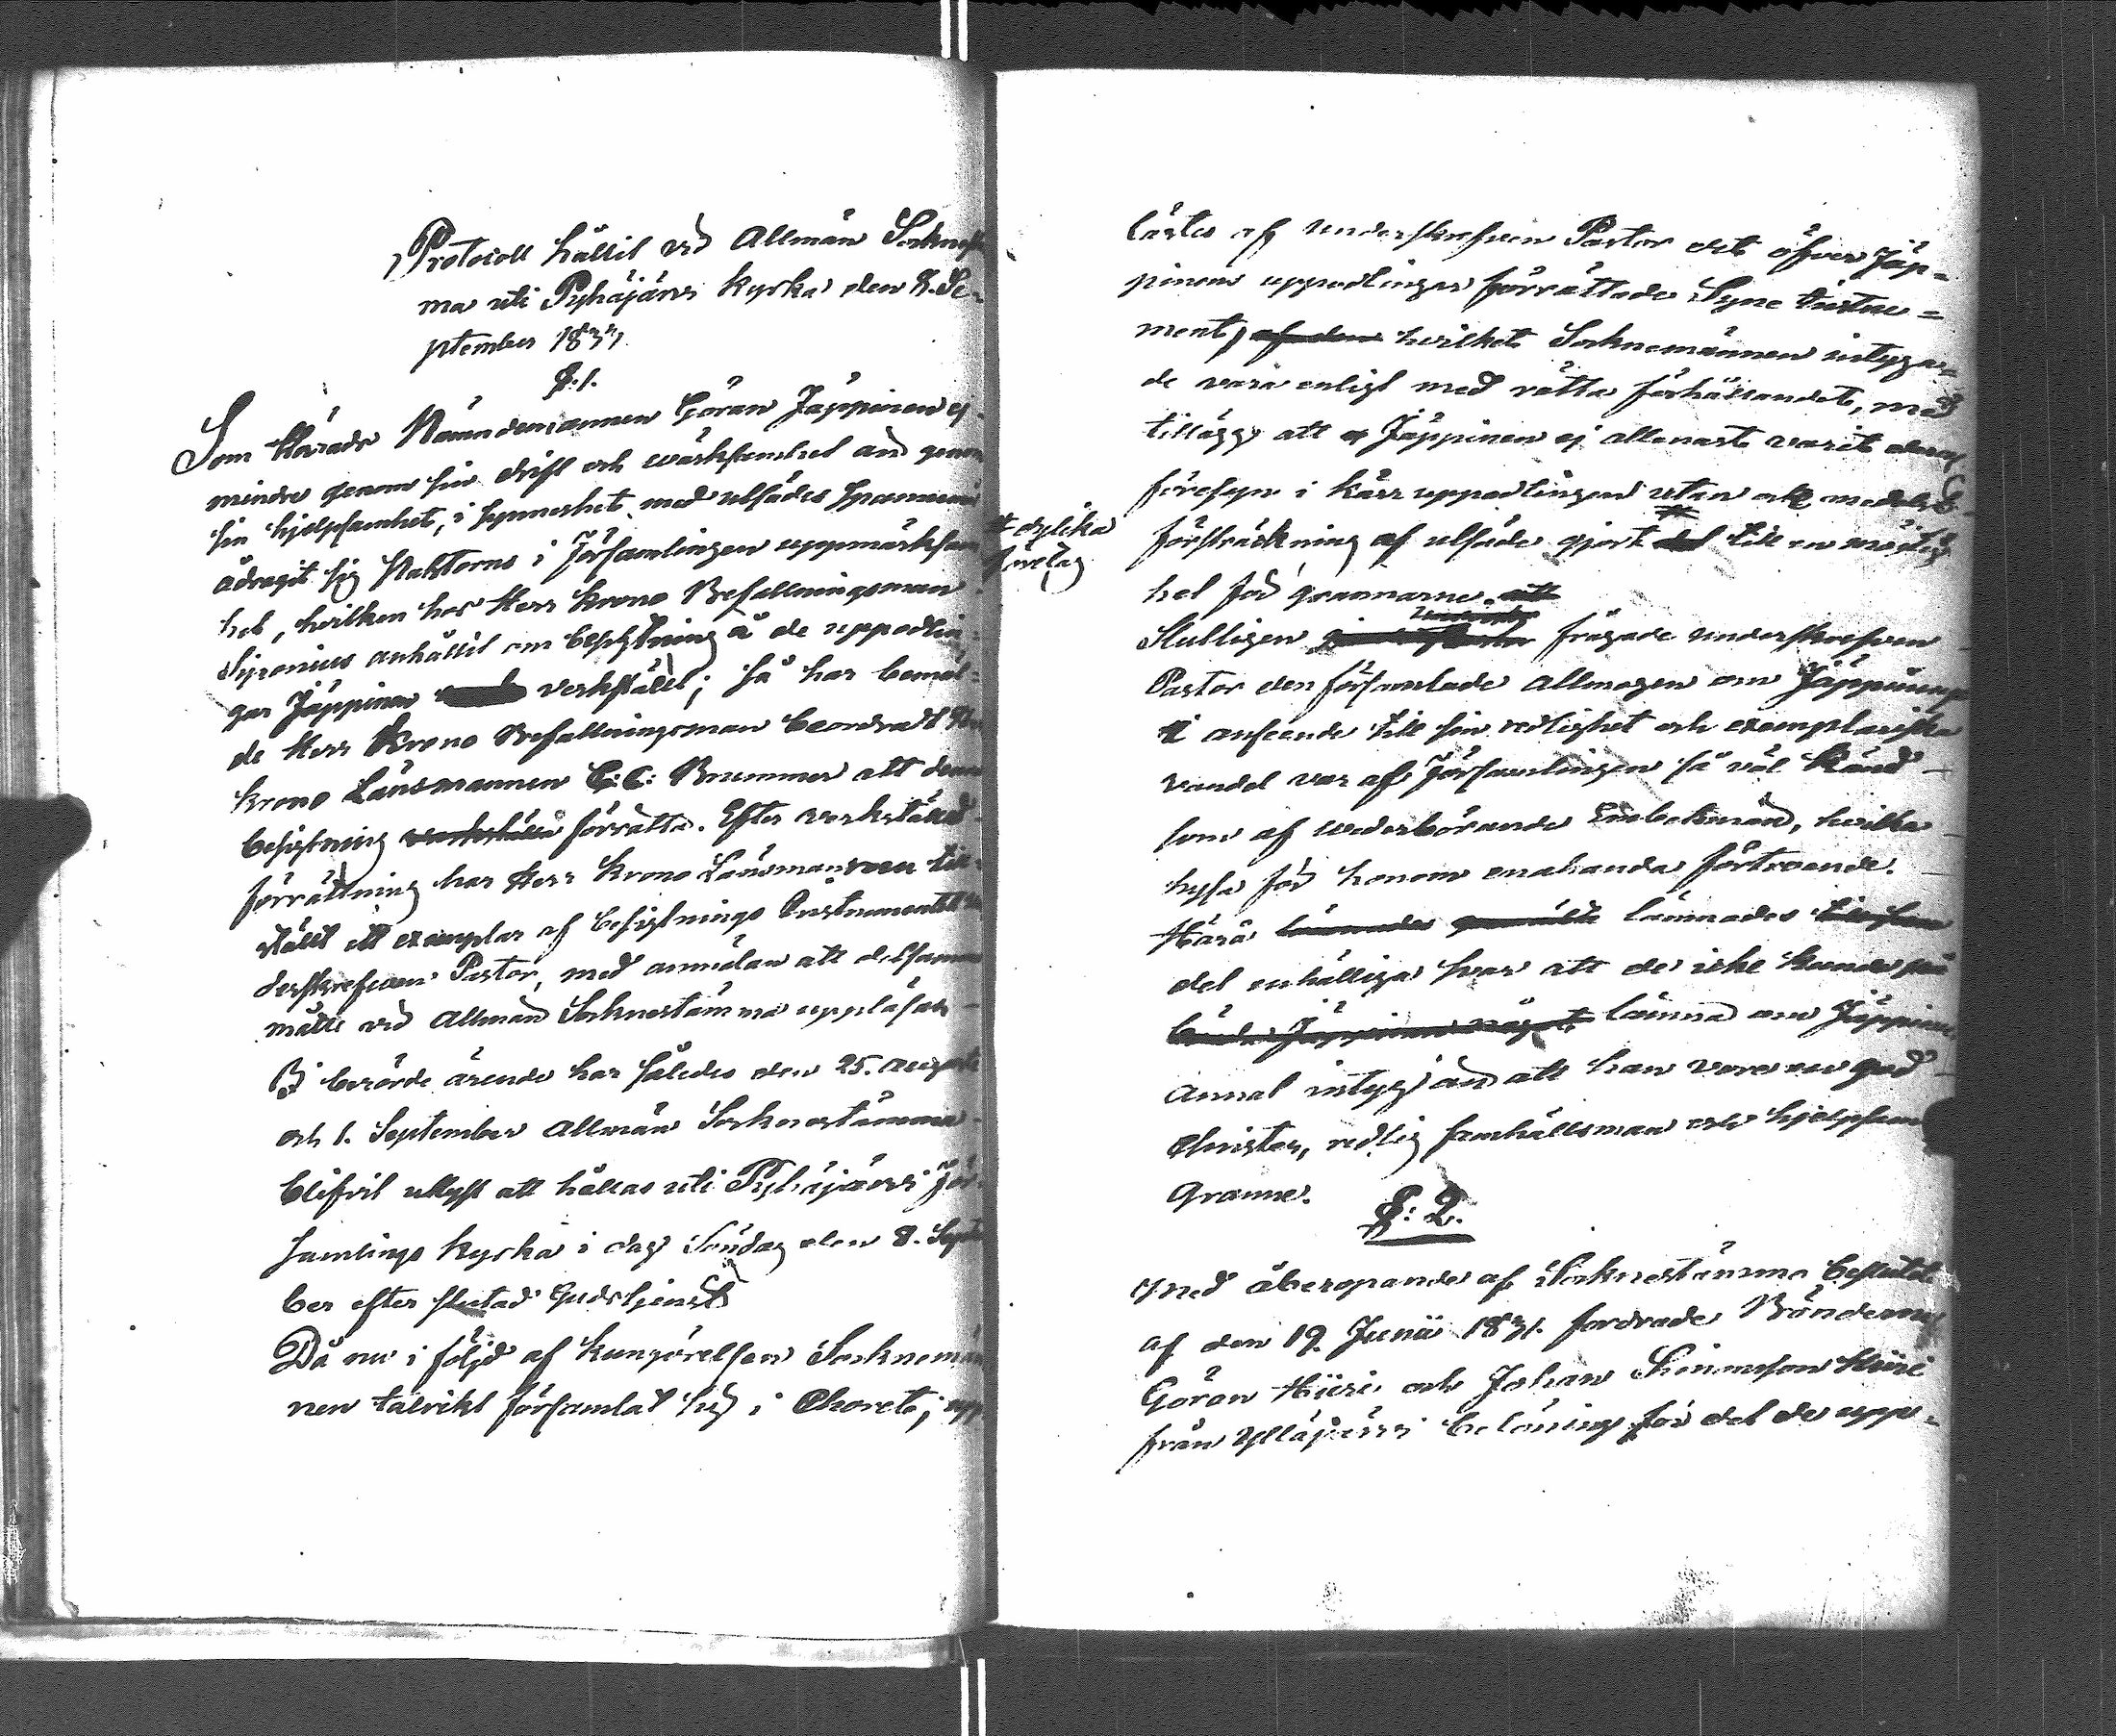 Protocoll hållit vid Allmän Sockenstä
ma uti Pyhäjärvi Kyrka den 8. Se-
ptember 1833
§. 1.
Som f. Härads Nämndemannen Göran Jäppinen ej
mindre genom sin drift och wärksamhet än genom
sin hjelpsamhet, i synnerhet med utsädes spannemål
ådragit sig Nabborns i Församlingen uppmärksam
het, hvilken hos Herr Krono Befallningsman
Sirenius anhållit om besigtning å de uppodlin-
gar Jäppinen verkstält; så har bemäl-
de Herr Krono Befallningsman beordrat
Krono Länsmannen C: C: Brummer att denna
besigtning verkställa förrätta. Efter verkstäld
förrättning har Herr Krono Länsmannen till-
stält ett exemplar af besigtnings Instrumentet
derskrefven Pastor, med anmälan att detsamma
måtte vid Allmän Socknestämma uppläsas
I berörde ärende har således den 25. Augusti
och 1. September Allmän Socknestämma
blifvit utlyst att hållas uti Pyhäjärvi För-
samlings Kyrka i dag Söndag den 8. Septem
ber efter slutad Gudstjenst
Då nu i följd af Kungörelsen Socknemän
nen talrikt församlat sig i Choret; upp
lästes af underskrefven Pastor det öfver Jäp-
pinens uppodlingar förrättade Syne Instru-
ment, af den hvilket Socknemännen intyga-
de vara enligt med rätta förhållandet, med
tillägg att Jäppinen ej allenast varit deras
föresyn i kärr uppodlingen utan ock medelst
försträckning af utsäde gjort # till en möjlig
# dylika
företag
het för grannarne. att
Slutligen frågade underskrefven
Pastor den församlade Allmogen om Jäppinen
i anseende till sin redlighet och exemplariska
vandel var af Församlingen så väl känd
som af wederbörande Embetsmän, hvilka
hysa för honom enahanda förtroende.
Härå lämnades lämnades
det enhälliga svar att de icke kunde
lämna om Jäppinen
annat intyg än att han vore en god
Christen, redlig samhällsman och hjelpsam
Granne.
§: 2.
Med åberopande af Socknestämma beslutet
af den 19. Junii 1831. fordrade Bönderne
Göran Hiiri och Johan Simonsson Hiiri
från Ylläjärvi belöning för det de upp-